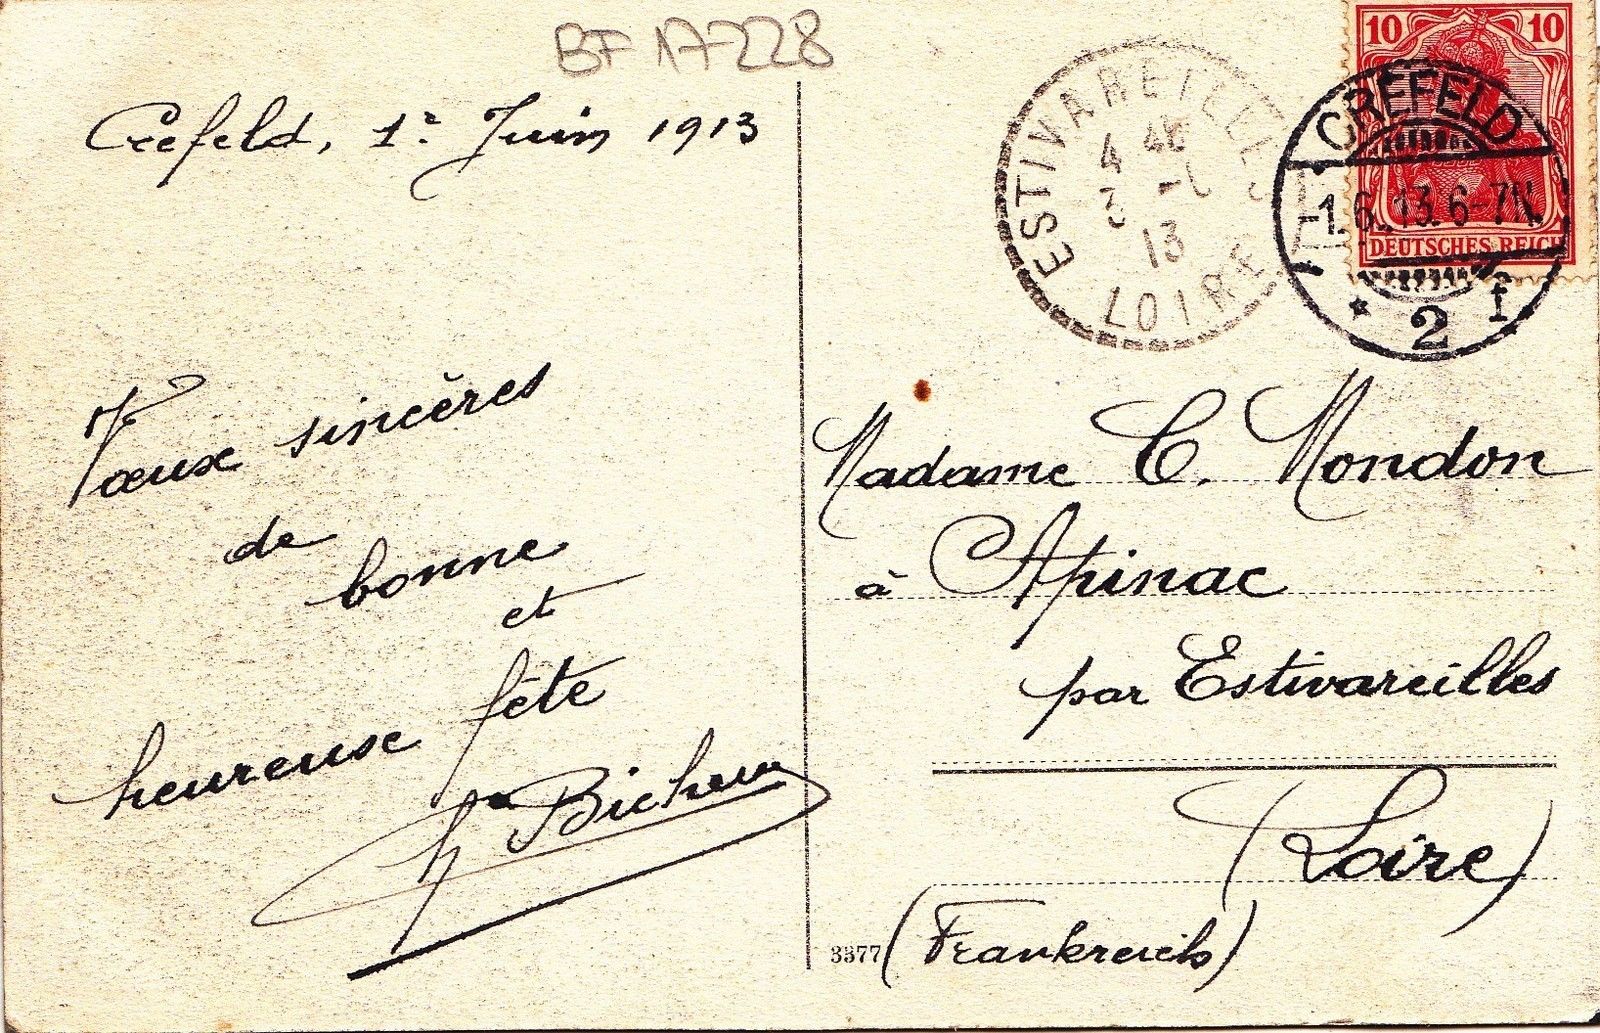 BF 17-228
Crefeld, 1er Juin 1913
Vœux sincères
de
bonne
et
heureuse fête
ESTIVAREILLES
4
13
LOIRE
10 10
DEUTSCHES REICH
CREFELD
-1.6.13.6-7N.
* 2 f
Madame C. Mondon
à Apinac
par Estivareilles
(Loire)
(Frankreich)
3377